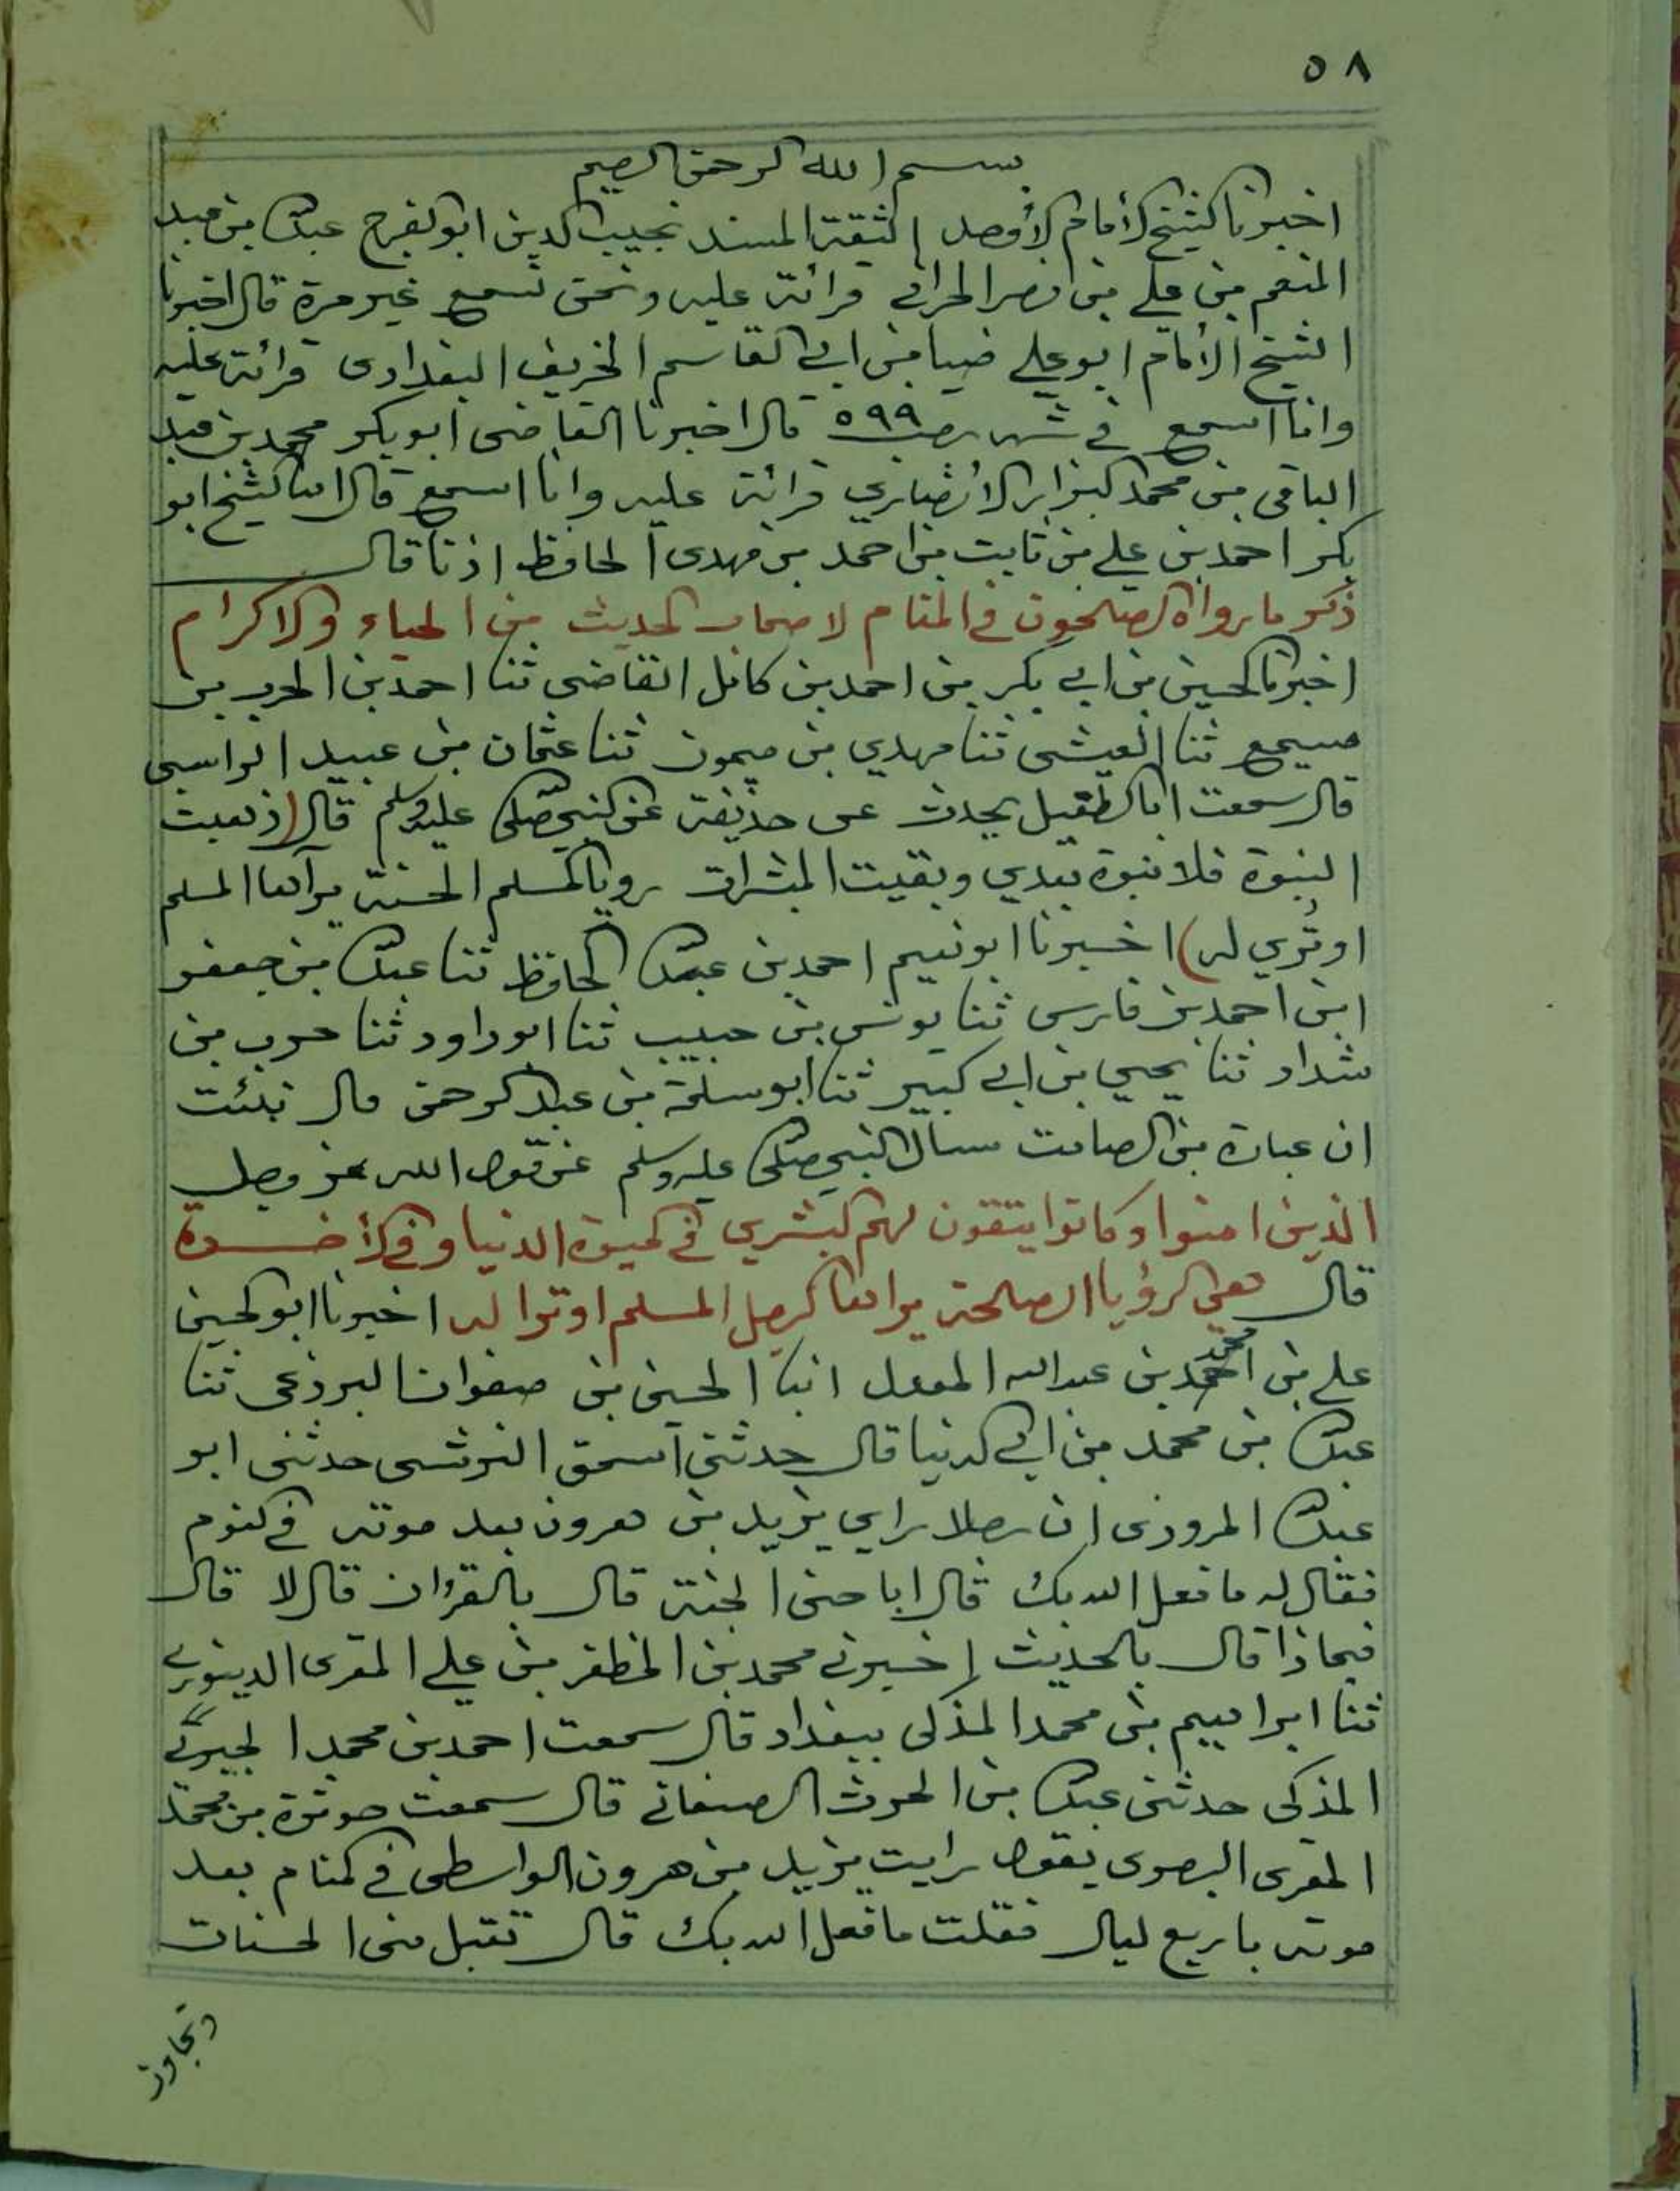 ٥٨
بسم الله الرحمن الرحيم
اخبرنا الشيخ الأمام الأفضل الثقة المسند نجيب الدين ابو الفرج عبد الله بن عبد
المنعم بن علي بن نصر الحراني قرائة عليه ونحن نسمع غير مرة قال اخبرنا
الشيخ الأمام ابو علي ضيا بن ابي القاسم الخريف البغدادى قرائة عليه
وانا اسمع في شهر رجب ٥٩٩ قال اخبرنا القاضى ابو بكر محمد بن عبد
الباقى بن محمد البزاز الأنصاري قرائة عليه وانا اسمع قال انا الشيخ ابو
بكر احمد بن علي بن ثابت بن احمد بن مهدى الحافظ اذنا قال
ذكر ما رواه الصلحون في المنام لاصحاب الحديث من الحباء والاكرام
اخبرنا الحسين بن ابي بكر بن احمد بن كامل القاضى ثنا احمد بن الحرب بن
مسيمع ثنا العيشى ثنا مهدي بن ميمون ثنا عثمان بن عبيد الراسبى
قال سمعت ابا الطفيل يحدث عن حذيفة عن النبي صلى عليه وسلم قال (ذهبت
النبوة فلا نبوة بعدي وبقيت المبشرات رويا المسلم الحسنة يرآها المسلم
او تُري له) اخبرنا ابو نعيم احمد بن عبد الله الحافظ ثنا عبد الله بن جعفر
ابن احمد بن فارس ثنا يونس بن حبيب ثنا ابو داود ثنا حرب بن
شداد ثنا يحيي بن ابي كبير ثنا ابو سلمة بن عبد الرحمن قال نبئت
ان عبادة بن الصامت سال النبي صلى عليه وسلم عن قول الله عز وجل
الذين امنوا وكانوا يتقون لهم البشري في الحيوة الدنيا وفي الأخرة
قال هي الرؤيا الصلحة يراها الرجل المسلم او ترا له اخبرنا ابو الحسين
علي بن محمد بن عبد الله المعدل انبا الحسين بن صفوان البرذعى ثنا
عبد الله بن محمد بن ابي الدنيا قال حدثني اسحق النوشى حدثنى ابو
عبد الله المروزى ان رجلا راي يزيد بن هرون بعد موته في النوم
فقال له ما فعل الله بك قال اباحنى الجنة قال بالقرٔان قال لا قال
فبماذا قال بالحديث اخبرني محمد بن المظفر بن علي المقرى الدينوري
ثنا ابراهيم بن محمد المذكى ببغداد قال سمعت احمد بن محمد الحيري
المذكى حدثنى عبد الله بن الحرث الصنعاني قال سمعت حوثرة بن محمد
المقرى البصوى يقول رايت يزيد بن هرون الواسطى في المنام بعد
موته باربع ليال فقلت ما فعل الله بك قال تقبل منى الحسنات
وتجاوز